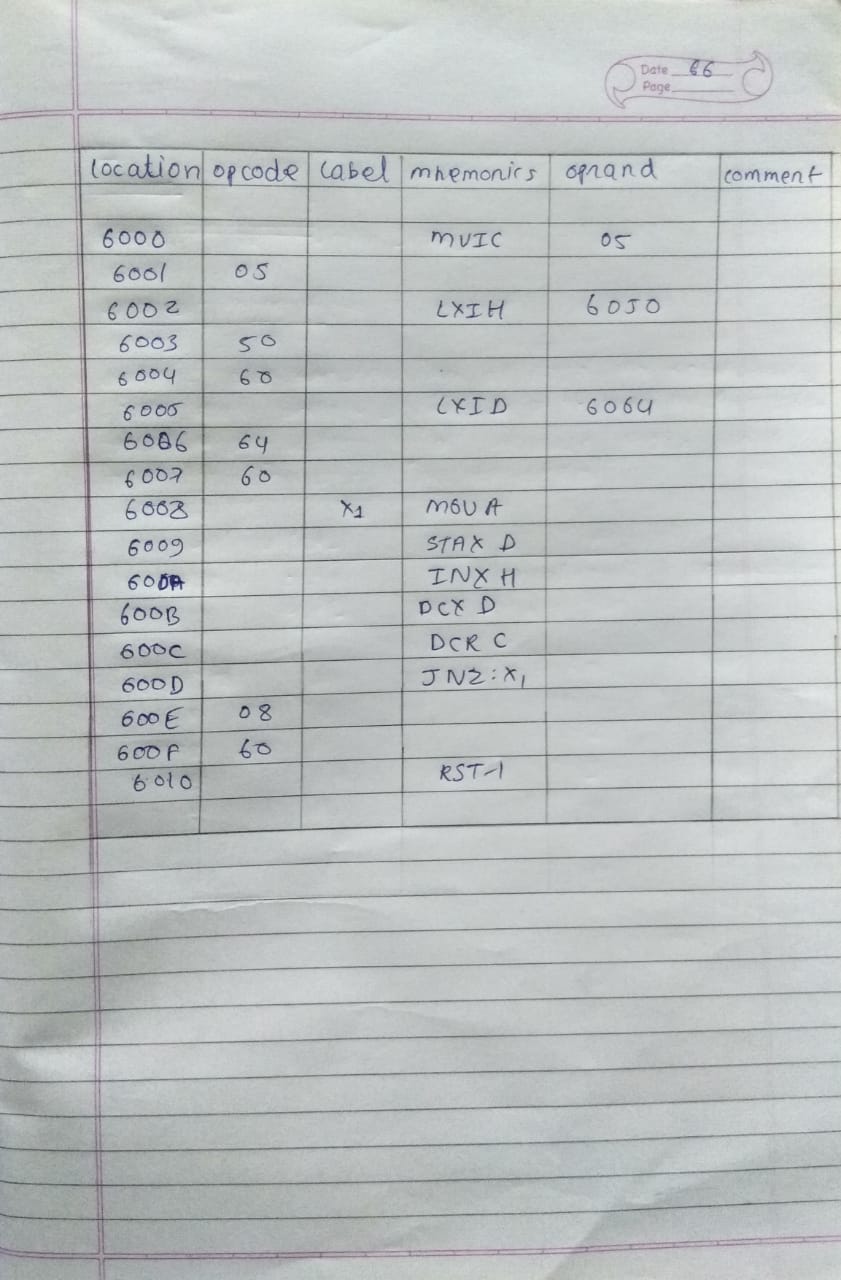 Date 66
Page
location opcode label mnemonics oprand comment
6000 MVIC 05
6001 05
6002 LXIH 6050
6003 50
6004 60
6005 LXID 6064
6006 64
6007 60
6008 X1 MOV A
6009 STAX D
600A INX H
600B DCX D
600C DCR C
600D JNZ:X1
600E 08
600F 60
6010 RST-1